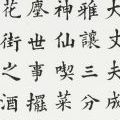 大丈夫成
雅讓三分
神仙喫菜
塵世事擺
花街之酒